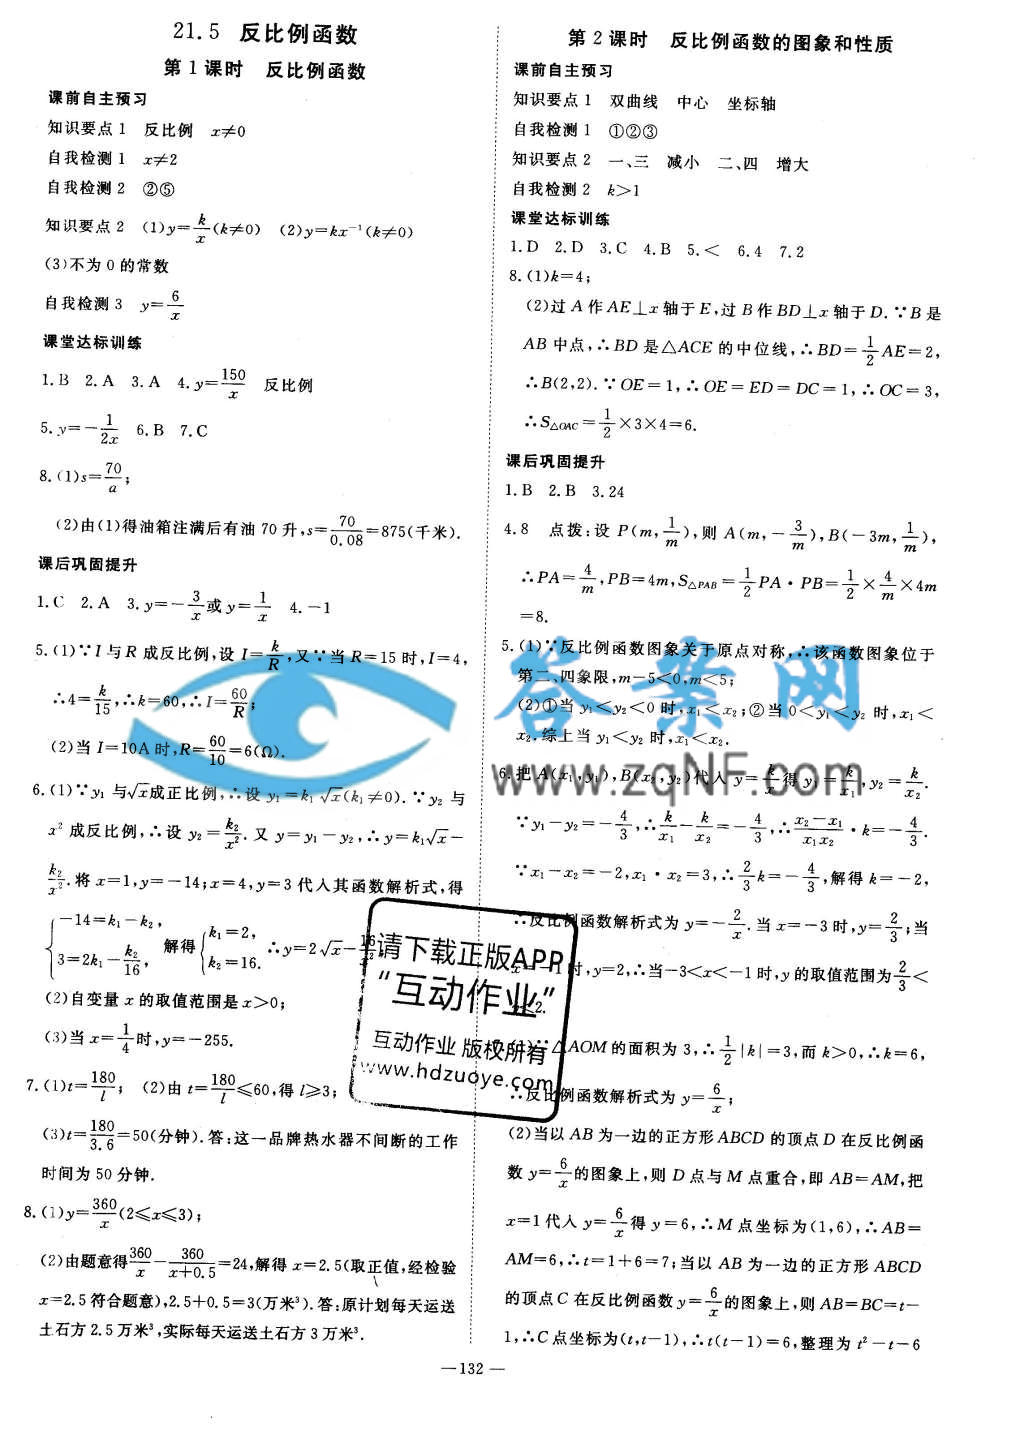 21.5 反比例函数
第1课时 反比例函数
课前自主预习
知识要点1 反比例 x≠0
自我检测1 x≠2
自我检测2 ②⑤
知识要点2 (1)y=k/x(k≠0) (2)y=kx⁻¹(k≠0)
(3)不为0的常数
自我检测3 y=6/x
课堂达标训练
1.B 2.A 3.A 4.y=150/x 反比例
5.y=-1/2x 6.B 7.C
8.(1)s=70/a;
(2)由(1)得油箱注满后有油70升,s=70/0.08=875(千米).
课后巩固提升
1.C 2.A 3.y=-3/x或y=1/x 4.-1
5.(1)∵I与R成反比例,设I=k/R,又∵当R=15时,I=4,
∴4=k/15,∴k=60,∴I=60/R;
(2)当I=10A时,R=60/10=6(Ω).
6.(1)∵y₁与√x成正比例,∴设y₁=k₁√x(k₁≠0).∵y₂与
x²成反比例,∴设y₂=k₂/x².又y=y₁-y₂,∴y=k₁√x-
k₂/x².将x=1,y=-14;x=4,y=3代入其函数解析式,得
{-14=k₁-k₂, 3=2k₁-k₂/16, 解得{k₁=2, k₂=16. ∴y=2√x-16/x²
(2)自变量x的取值范围是x>0;
(3)当x=1/4时,y=-255.
7.(1)t=180/l; (2)由t=180/l≤60,得l≥3;
(3)t=180/3.6=50(分钟).答:这一品牌热水器不间断的工作
时间为50分钟.
8.(1)y=360/x(2≤x≤3);
(2)由题意得360/x-360/x+0.5=24,解得x=2.5(取正值,经检验
x=2.5符合题意),2.5+0.5=3(万米³).答:原计划每天运送
土石方2.5万米³,实际每天运送土石方3万米³.
第2课时 反比例函数的图象和性质
课前自主预习
知识要点1 双曲线 中心 坐标轴
自我检测1 ①②③
知识要点2 一、三 减小 二、四 增大
自我检测2 k>1
课堂达标训练
1.D 2.D 3.C 4.B 5.< 6.4 7.2
8.(1)k=4;
(2)过A作AE⊥x轴于E,过B作BD⊥x轴于D.∵B是
AB中点,∴BD是△ACE的中位线,∴BD=1/2AE=2,
∴B(2,2).∵OE=1,∴OE=ED=DC=1,∴OC=3,
∴S△OAC=1/2×3×4=6.
课后巩固提升
1.B 2.B 3.24
4.8 点拨:设P(m,1/m),则A(m,-3/m),B(-3m,1/m),
∴PA=4/m,PB=4m,S△PAB=1/2PA·PB=1/2×4/m×4m
=8.
5.(1)∵反比例函数图象关于原点对称,∴该函数图象位于
第二、四象限,m-5<0,m<5;
(2)①当y₁<y₂<0时,x₁<x₂;②当0<y₁<y₂时,x₁<
x₂.综上当y₁<y₂时,x₁<x₂.
6.把A(x₁,y₁),B(x₂,y₂)代入y=k/x得y₁=k/x₁,y₂=k/x₂.
∵y₁-y₂=-4/3,∴k/x₁-k/x₂=-4/3,∴x₂-x₁/x₁x₂·k=-4/3.
∵x₁-x₂=-2,x₁·x₂=3,∴2/3k=-4/3,解得k=-2,
∴反比例函数解析式为y=-2/x.当x=-3时,y=2/3;当
x=-1时,y=2,∴当-3<x<-1时,y的取值范围为2/3<
y<2.
(1)∵△AOM的面积为3,∴1/2|k|=3,而k>0,∴k=6,
∴反比例函数解析式为y=6/x;
(2)当以AB为一边的正方形ABCD的顶点D在反比例函
数y=6/x的图象上,则D点与M点重合,即AB=AM,把
x=1代入y=6/x得y=6,∴M点坐标为(1,6),∴AB=
AM=6,∴t=1+6=7;当以AB为一边的正方形ABCD
的顶点C在反比例函数y=6/x的图象上,则AB=BC=t-
1,∴C点坐标为(t,t-1),∴t(t-1)=6,整理为t²-t-6
答案网
www.zqNF.com
请下载正版APP
“互动作业”
互动作业 版权所有
www.hdzuoye.com
—132—